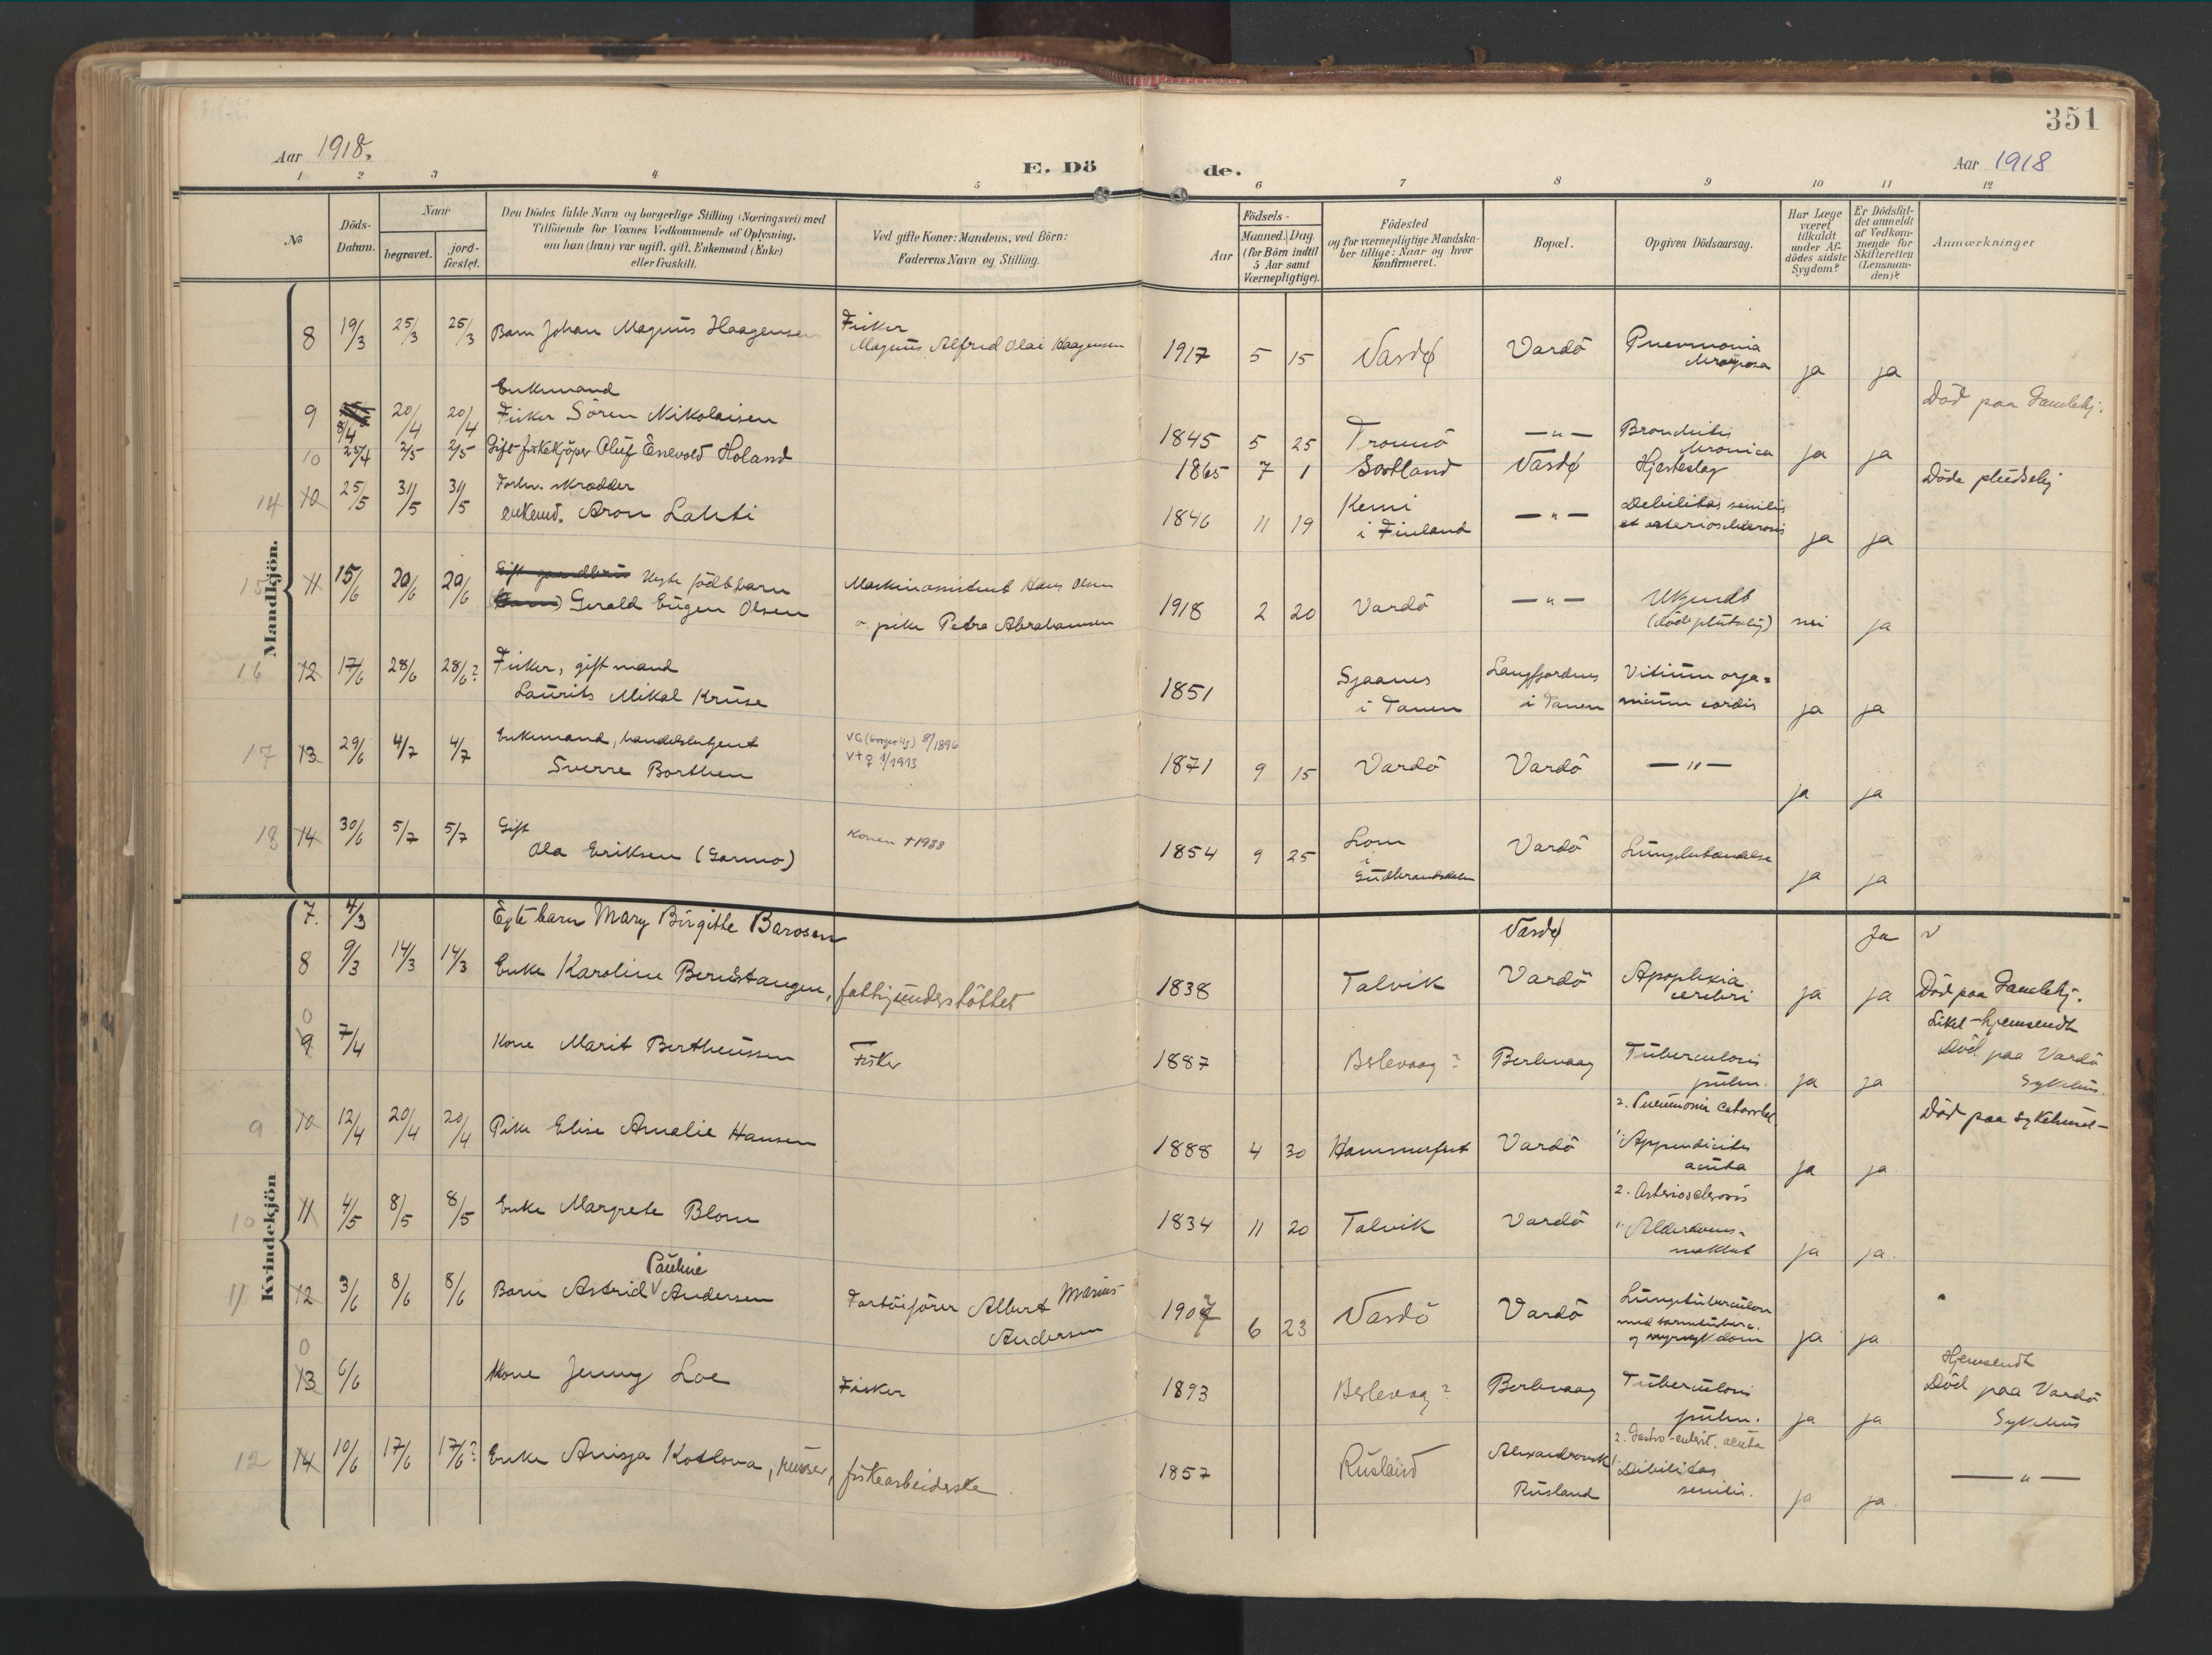 351
Aar 1918.
E. Dö
de.
Aar 1918
1 2 3 4 5 6 7 8 9 10 11 12
№
Döds-Datum.
Naar
begravet.
jord-fæstet.
Den Dödes fulde Navn og borgerlige Stilling (Næringsvei) med
Tilföiende for Voxnes Vedkommende af Oplysning,
om han (hun) var ugift, gift, Enkemand (Enke)
eller fraskilt.
Ved gifte Koner: Mandens, ved Börn:
Faderens Navn og Stilling.
Födsels-
Aar
Maaned. Dag.
(for Börn indtil
5 Aar samt
Værnepligtige).
Födested
og for værnepligtige Mandska-
ber tillige: Naar og hvor
konfirmeret.
Bopæl.
Opgiven Dödsaarsag.
Har Læge
været
tilkaldt
under Af-
dödes sidste
Sygdom?
Er Dödsfal-
det anmeldt
af Vedkom-
mende for
Skifteretten
(Lensman-
den)?
Anmærkninger
Mandkjön.
8 19/3 25/3 25/3 Barn Johan Magnus Haagensen Fisker
Magnus Alfred Olai Haagensen 1917 5 15 Vardø Vardö Pneumonia
ja ja
Enkemand
9 8/4 20/4 20/4 Fisker Sören Nikolaisen 1845 5 25 Tromsö —"— Bronchitis
chronica ja ja Död paa Gamlehj.
10 25/4 2/5 2/5 Gift fiskekjöper Oluf Enevold Holand 1865 7 1 Scotland Vardø Hjerteslag Döde pludselig
Forhv. skrædder
14 10 25/5 31/5 31/5 enkemd. Aron Lahti 1846 11 19 Kemi
i Finland —"— Debilitas senilis
et arteriosclerosis ja ja
15 11 15/6 20/6 20/6 Uegte födt barn
Gerald Eugen Olsen Maskinassistent Hans Olsen
o. pike Petra Abrahamsen 1918 2 20 Vardö —"— Ukjendt
(döde plutselig) nei ja
16 12 17/6 28/6 28/6? Fisker, gift mand
Laurits Mikal Kruse 1851 Sjaanes
i Tanen Langfjordnes
i Tanen Vitium orga=
nicum cordis ja ja
17 13 29/6 4/7 4/7 Enkemand, handelsbetjent
Sverre Borthen VG (borgerlig) 8/1896
V+♀ 1/1913 1871 9 15 Vardö Vardö —"— ja ja
18 14 30/6 5/7 5/7 Gift
Ola Eriksen (Garmo) Konen +1933 1854 9 25 Lom
i
Gudbrandsdalen Vardö Lungebetændelse ja ja
Kvindekjön
7. 4/3 Egte barn Mary Birgitte Barosen Vardø Ja v
8 9/3 14/3 14/3 Enke Karoline Berustangen, fattigunderstöttet 1838 Talvik Vardö Apoplexia
cerebri ja ja Död paa Gamlehj.
0
9 7/4 Kone Marit Bertheussen Fisker 1887 Berlevaag? Berlevaag Tuberculosis
pulm. ja ja Liket hjemsendt
Död paa Vardö
Sykehus.
9 10 12/4 20/4 20/4 Pike Elise Amalie Hansen 1888 4 30 Hammerfest Vardö 2. Pneumonia catarrhal
1. Appendicitis
acuta ja ja Död paa sykehuset-
10 11 4/5 8/5 8/5 Enke Margrete Blom 1834 11 20 Talvik Vardö 2. Arteriosclerosis
1. Alderdoms-
ja ja
11 12 3/6 8/6 8/6 Barn Astrid Pauline Andersen Fartöiförer Albert Marius
Andersen 1907 6 23 Vardö Vardö Lungetuberculose
med tarmtuberc.
og nyresykdom ja ja
0
13 6/6 Kone Jenny Loe Fisker 1893 Berlevaag? Berlevaag Tuberculosis
pulm. ja ja Hjemsendt
Död paa Vardö
Sykehus
12 14 10/6 17/6 17/6? Enke Anisja Kotlova, russer, fiskearbeiderske. 1857 Rusland Alexandrovsk
Rusland 2. Gastro-enterit. acuta
1. Dibilitas
senilis. ja ja —"—